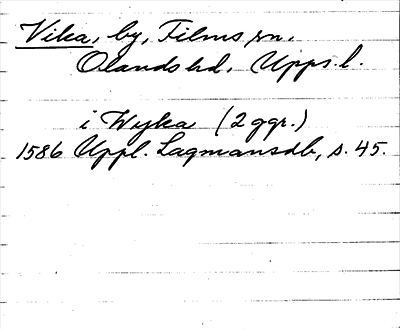 Vika, by, Films sn.
Olands hd. Upps. l.
i Wyka (2 ggr.)
1586 Uppl. Lagmansdb, s. 45.